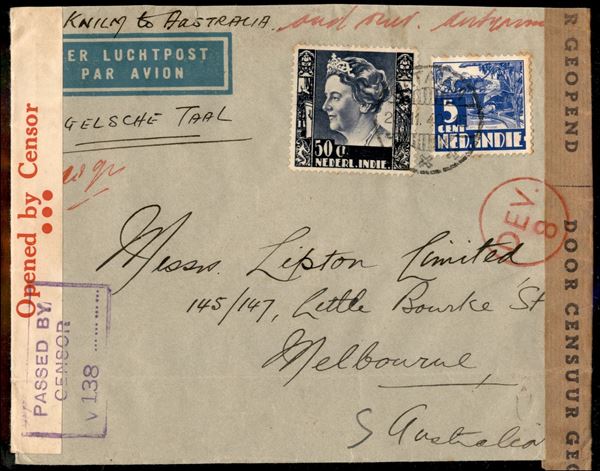 KNILM to AUSTRALIA
ER LUCHTPOST
PAR AVION
GELSCHE TAAL
50 Ct
NEDERL.INDIE
5
CENT
NED.INDIE
DEV.
8
Messrs. Lipton Limited
145/147, Little Bourke St
Melbourne,
S Australia
Opened by Censor
PASSED BY
CENSOR
V 138
R GEOPEND
DOOR CENSUUR GE